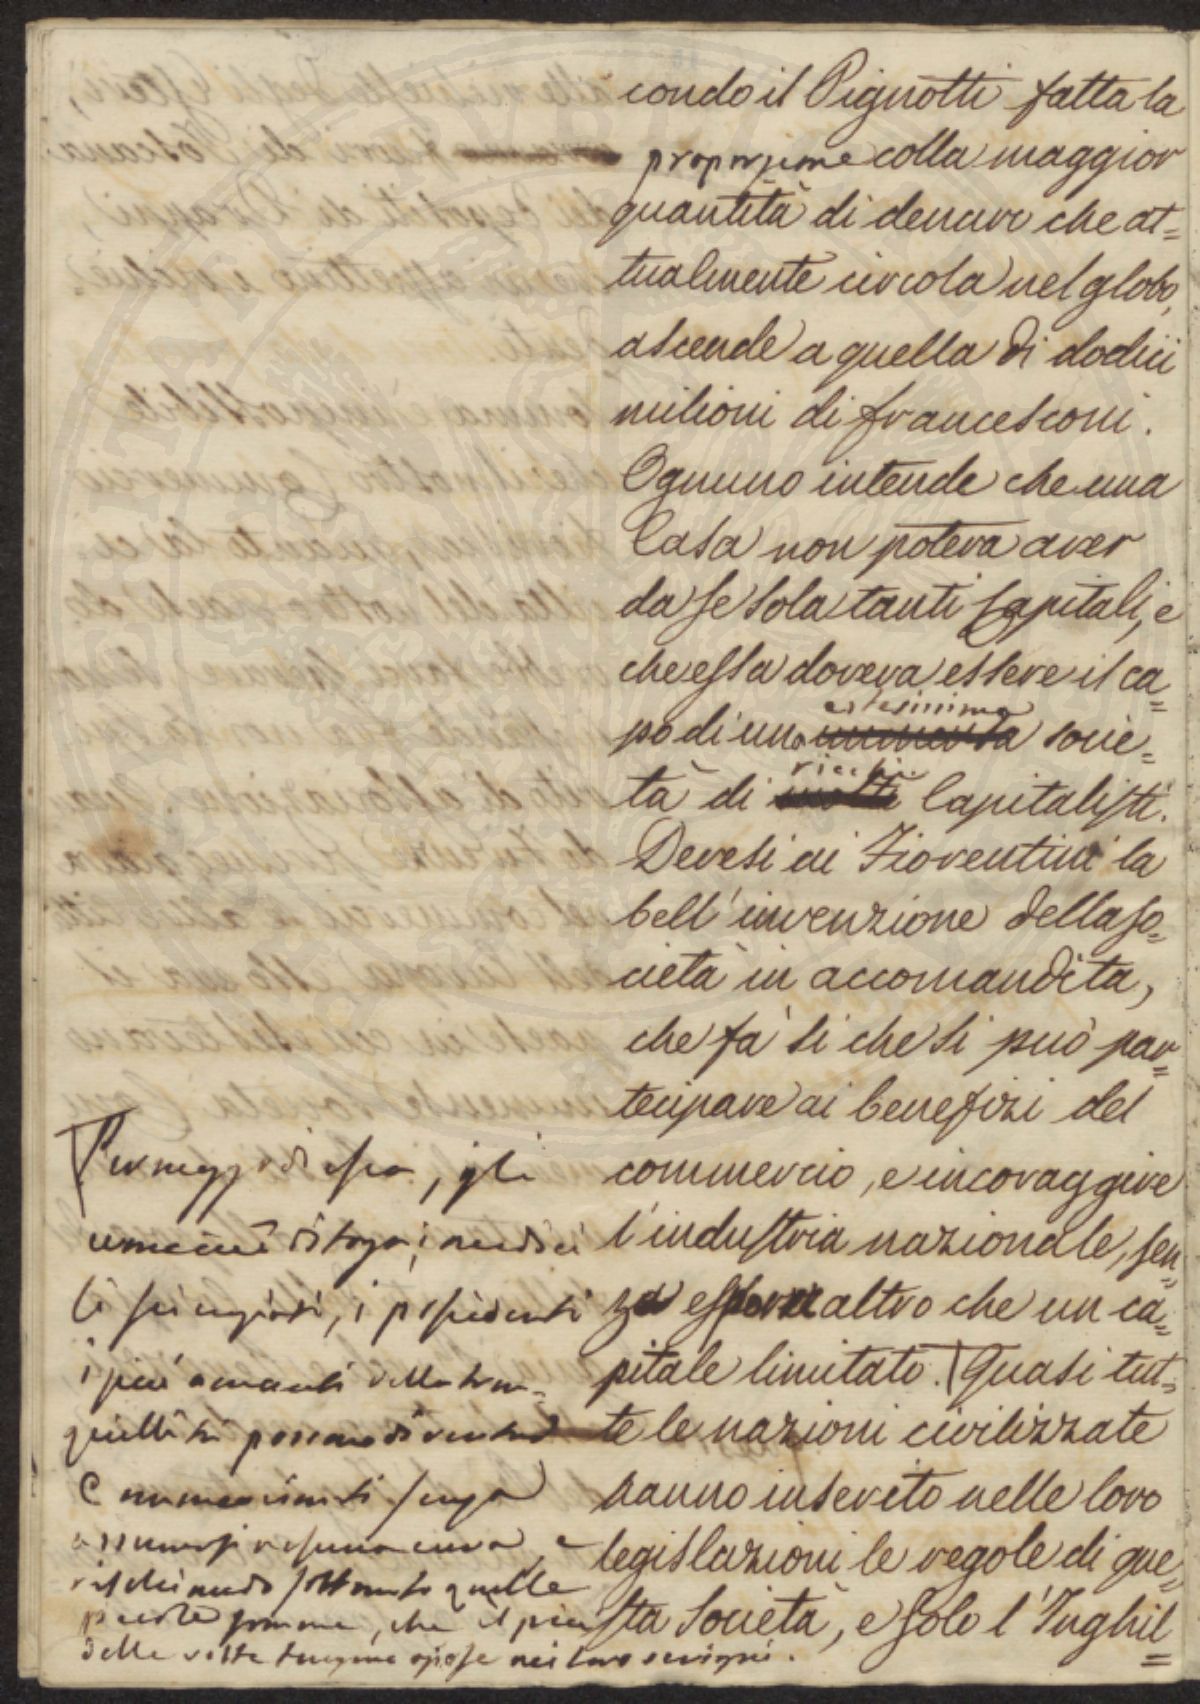 condo il Pignotti fatta la
proporzione colla maggior
quantità di denaro che at=
tualmente circola nel globo,
ascende a quella di dodici
milioni di francesconi.
Ognuno intende che una
Casa non poteva aver
da se sola tanti Capitali, e
che essa doveva essere il ca=
estesissima
po di una socie=
ricchi
tà di molti Capitalisti.
Devesi ai Fiorentini la
bell'invenzione della so=
cietà in accomandita,
che fà si che si può par=
tecipare ai benefizi del
commercio, e incoraggire
l'industria nazionale, sen=
za esporre altro che un ca=
pitale limitato. Quasi tut=
te le nazioni civilizzate
hanno inserito nelle loro
legislazioni le regole di que=
sta Società, e solo l'Inghil=
Per mezzo di essa, gli
uomini di toga, i medici
i possidenti
i più amanti della tran=
quillità possono diventare
Commercianti senza
assumersi nessuna cura, e
rischiando soltanto quelle
piccole somme, che il più
delle volte tengono oziose nei loro scrigni.